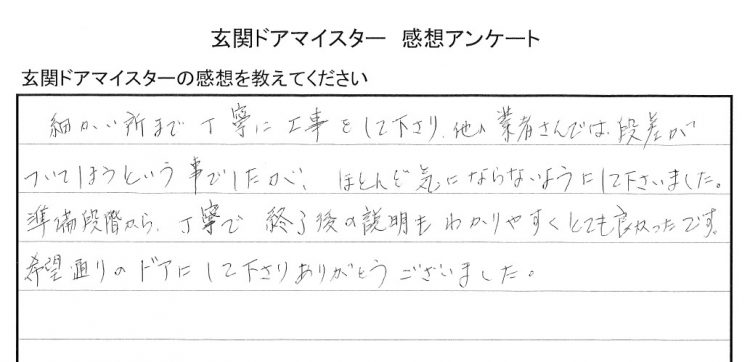 玄関ドアマイスター 感想アンケート
玄関ドアマイスターの感想を教えてください
細かい所まで丁寧に工事をして下さり、他の業者さんでは、段差が
ついてしまうという事でしたが、ほとんど気にならないようにして下さいました。
準備段階から、丁寧で 終了後の説明も わかりやすくとても良かったです。
希望通りのドアにして下さりありがとうございました。